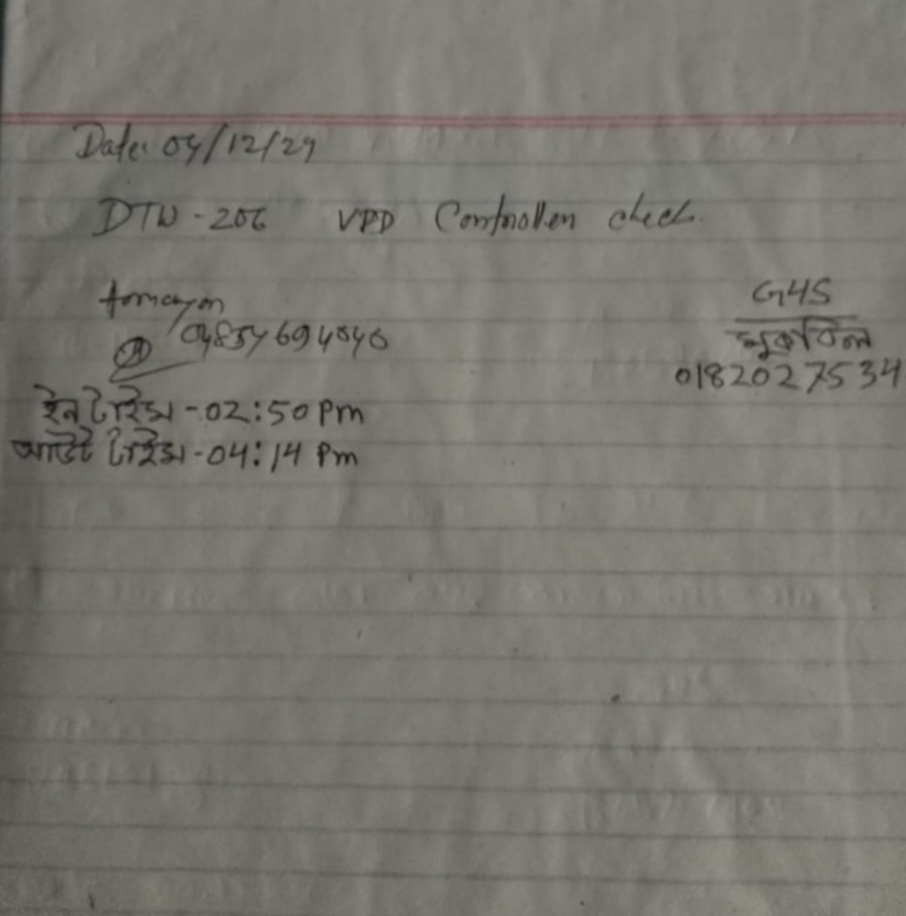 Date: 04/12/24
DTW-206 VPD Controller check
G4S
মুকাবিল
0182027534
ইন টাইম -02:50 pm
আউট টাইম -04:14 pm